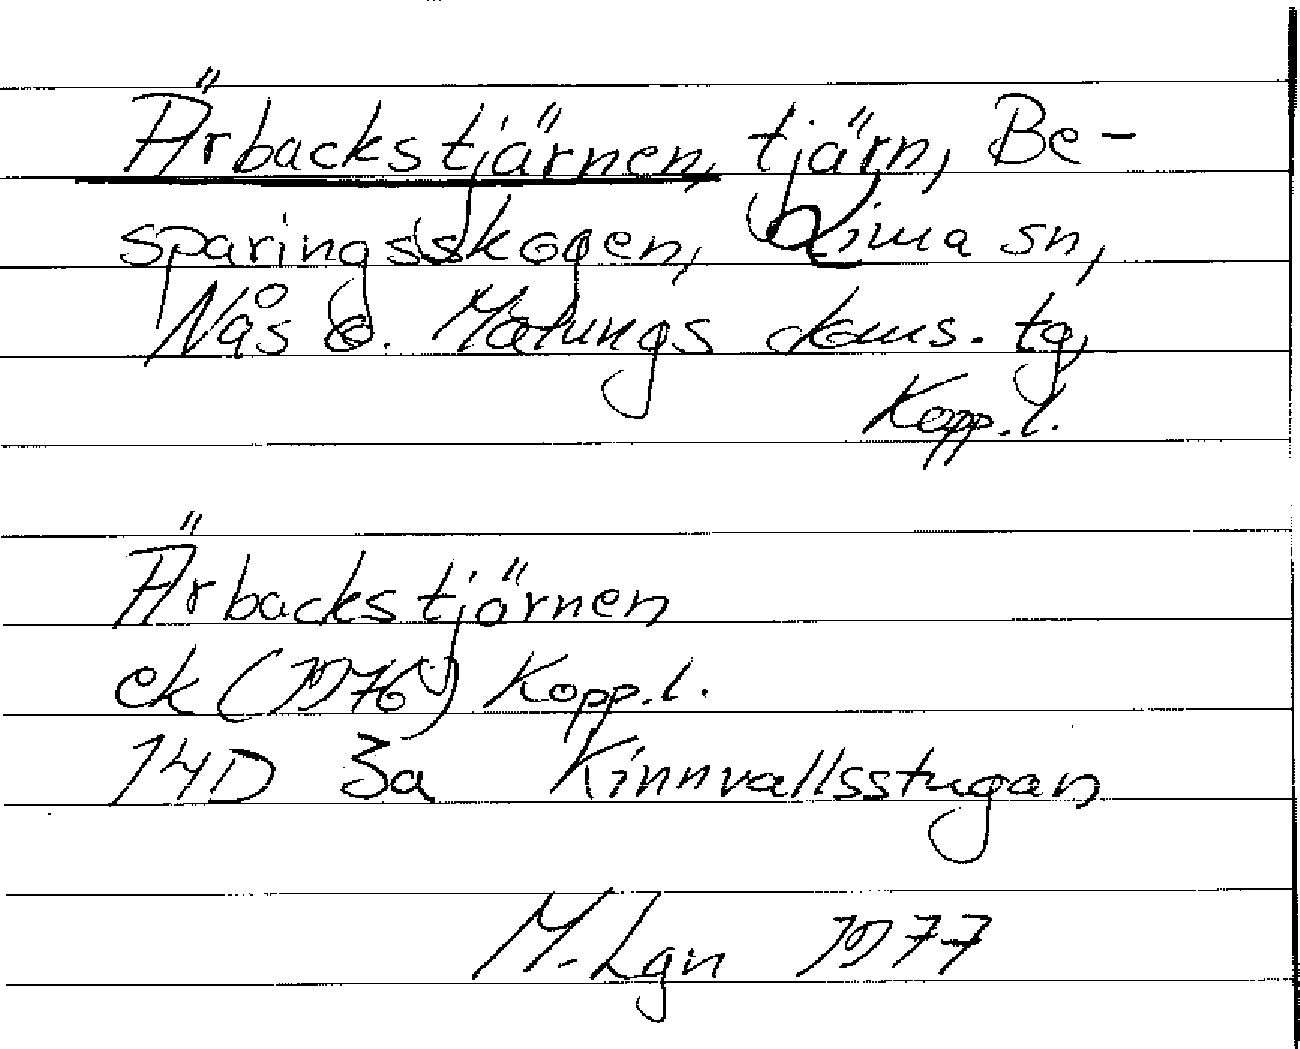 Ärbackstjärnen, tjärn, Be-
sparingsskogen, Lima sn,
Nås o. Malungs doms. tg,
Kopp. l.
Ärbackstjärnen
ek (1976) Kopp. l.
14D 3a Kinnvallsstugan
M. Lgn 1977